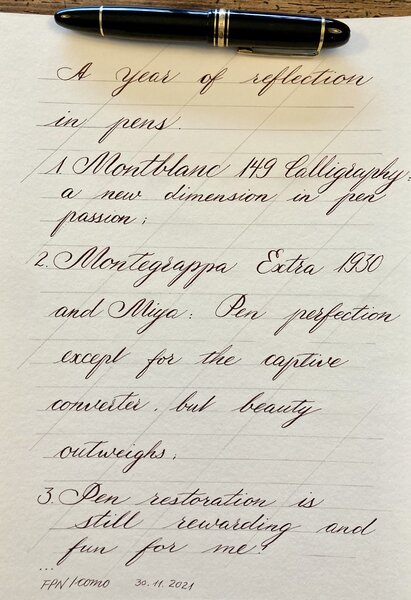 A year of reflection
in pens.
1. Montblanc 149 Calligraphy:
a new dimension in pen
passion;
2. Montegrappa Extra 1930
and Miya: Pen perfection
except for the captive
converter, but beauty
outweighs;
3. Pen restoration is
still rewarding and
fun for me!
...
FPN/como 30.11.2021